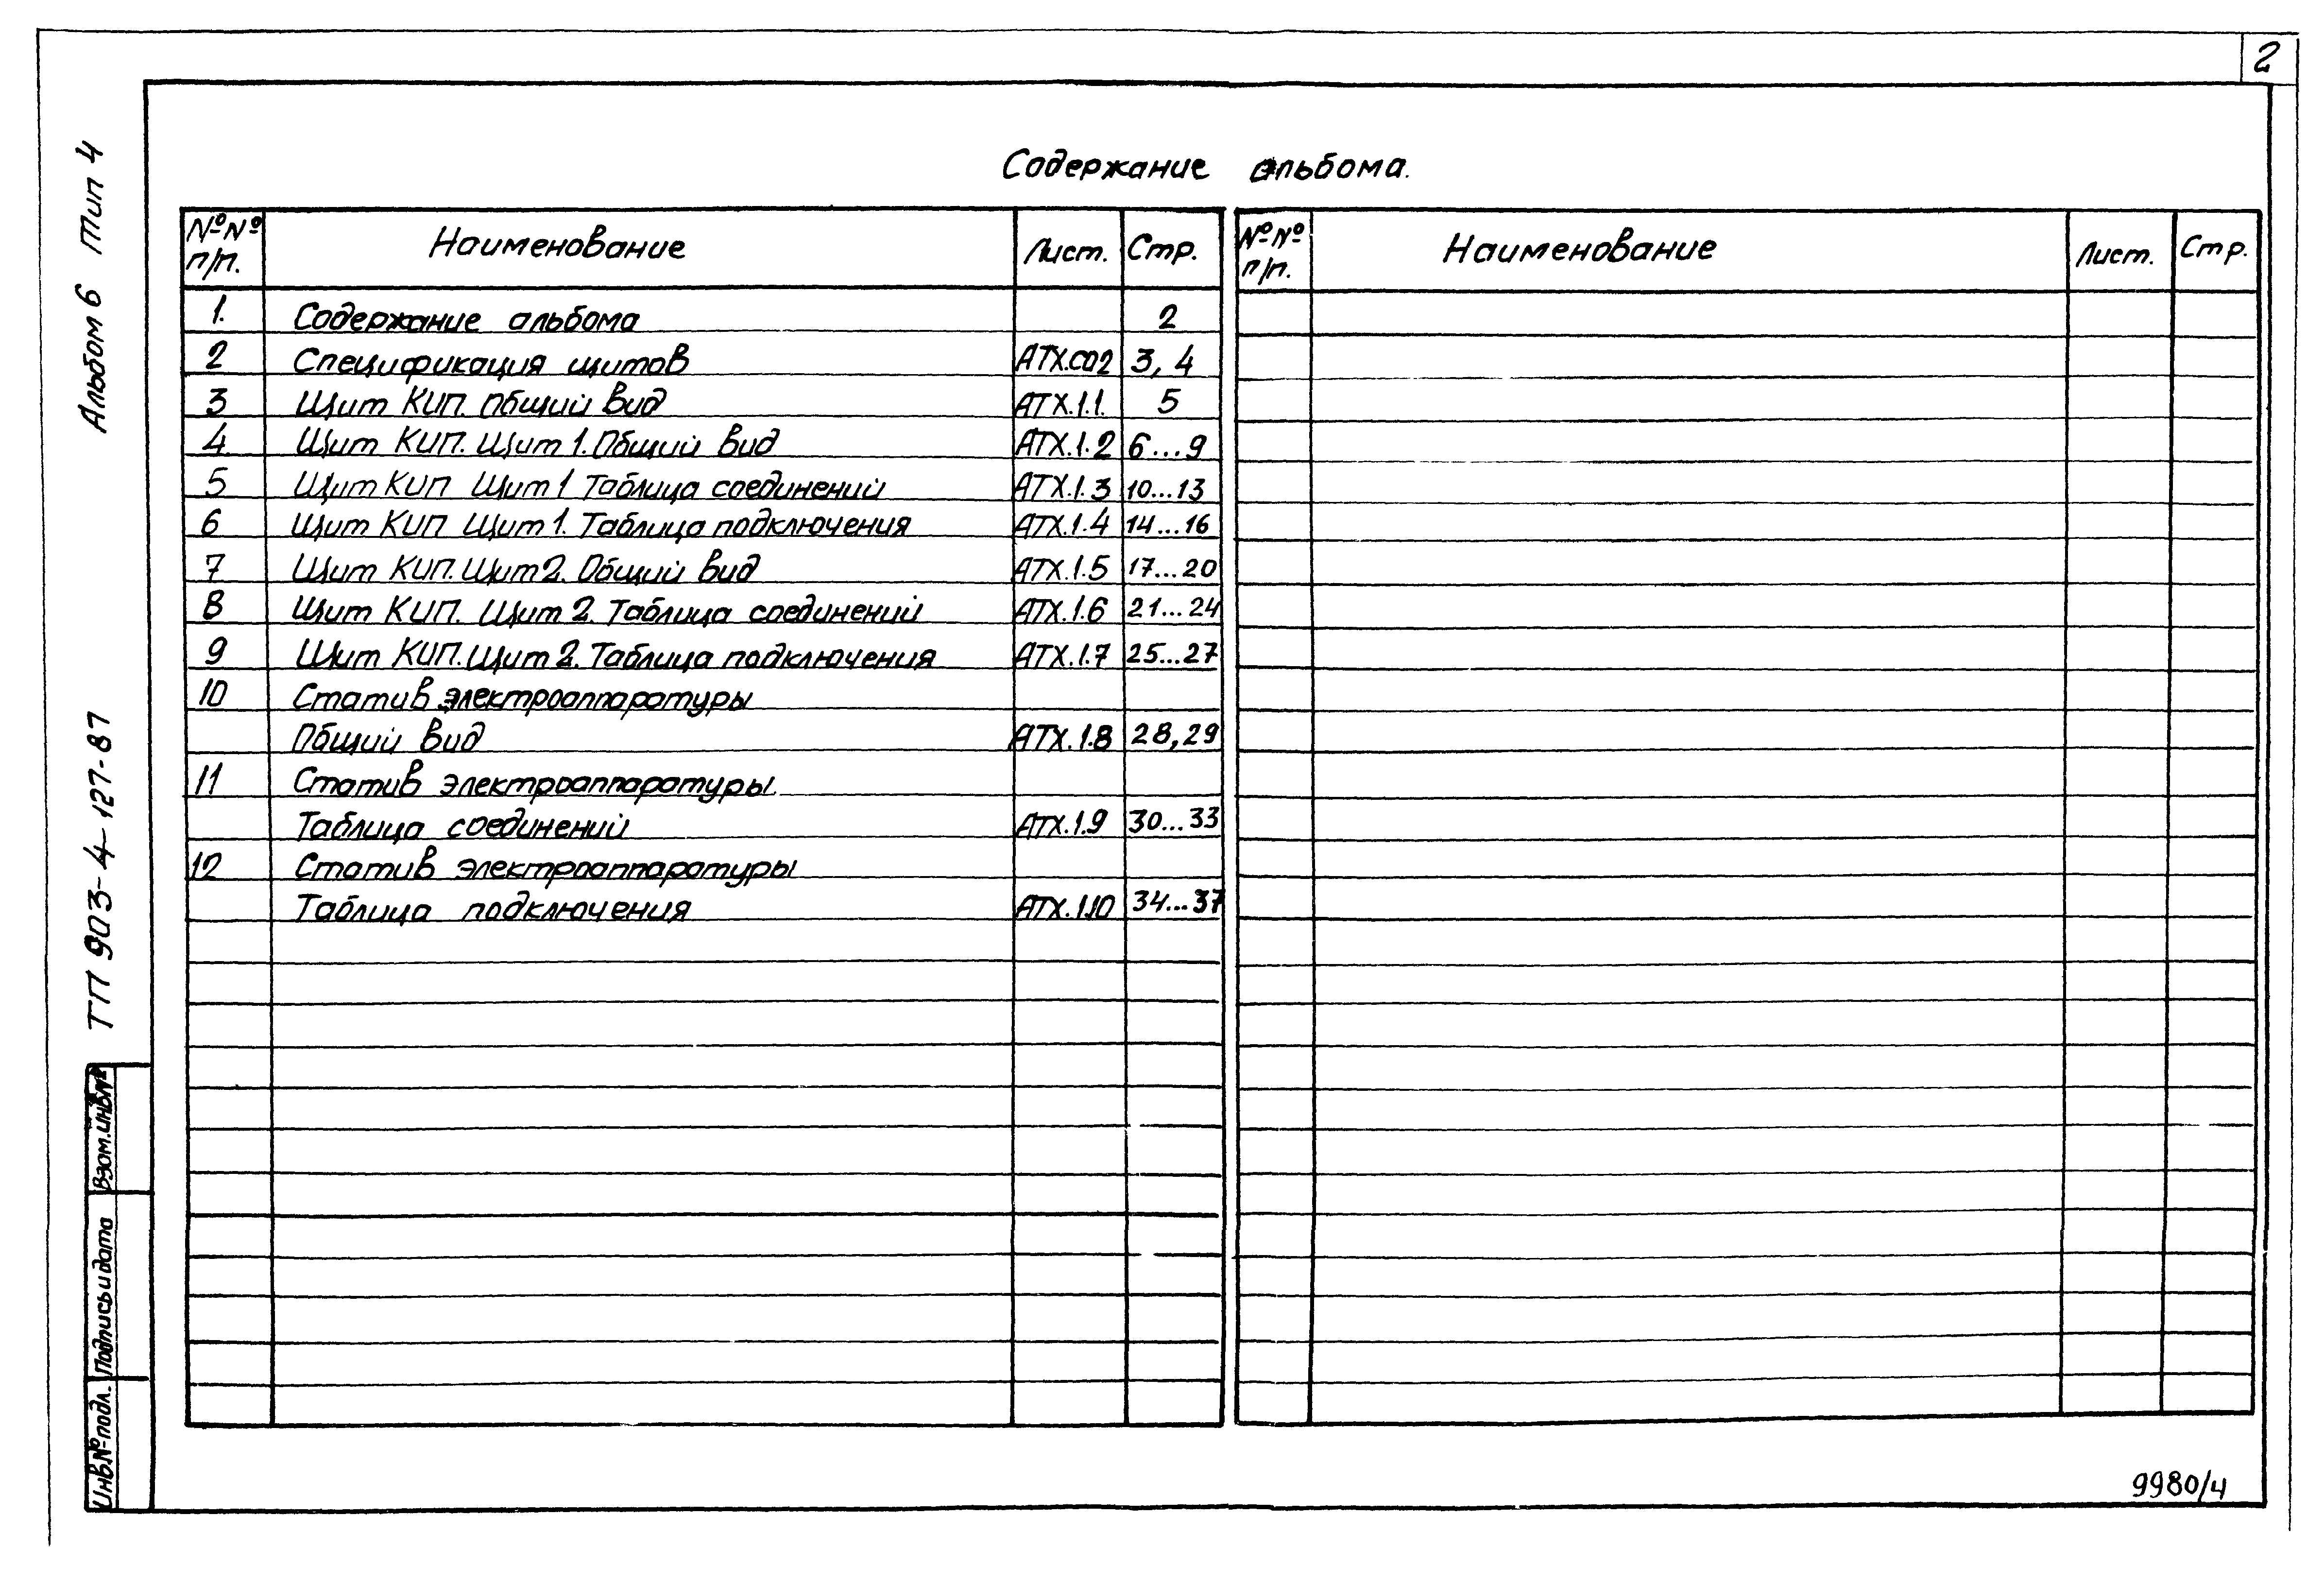 2
Альбом 6 Тип 4
ТП 903-4-127-87
Содержание альбома.
№№ п/п. Наименование Лист. Стр.
1. Содержание альбома 2
2 Спецификация щитов АТХ.СО2 3, 4
3 Щит КИП. Общий вид АТХ.1.1. 5
4 Щит КИП. Щит 1. Общий вид АТХ.1.2 6...9
5 Щит КИП Щит 1 Таблица соединений АТХ.1.3 10...13
6 Щит КИП Щит 1. Таблица подключения АТХ.1.4 14...16
7 Щит КИП. Щит 2. Общий вид АТХ.1.5 17...20
8 Щит КИП. Щит 2. Таблица соединений АТХ.1.6 21...24
9 Щит КИП. Щит 2. Таблица подключения АТХ.1.7 25...27
10 Статив электроаппаратуры
Общий вид АТХ.1.8 28, 29
11 Статив электроаппаратуры
Таблица соединений АТХ.1.9 30...33
12 Статив электроаппаратуры
Таблица подключения АТХ.1.10 34...37
№№ п/п. Наименование Лист. Стр.
Взам.инв№
Подпись и дата
Инв.№подл.
9980/4